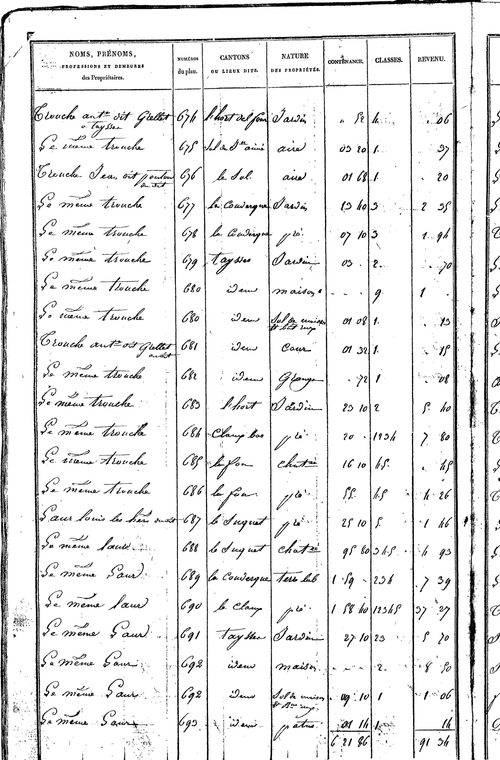 NOMS, PRÉNOMS, PROFESSIONS ET DEMEURES des Propriétaires. NUMÉROS du plan. CANTONS OU LIEUX DITS. NATURE DES PROPRIÉTÉS. CONTENANCE. CLASSES. REVENU.
Trouche ant.ne dit Grellet à Taysse 674 l'hort del fon Jardin . 52 4 . 06
Le même trouche 675 Sol de aire 03 20 1 . 37
Trouche Jean dit 676 le Sol aire 01 68 1 . 20
Le même trouche 677 la Couderque Jardin 13 40 3 2 35
Le même trouche 678 la Couderque pré 07 10 3 1 94
Le même trouche 679 taysse Jardin 03 . 2 . 70
Le même trouche 680 idem maison . . 9 1 .
Le même trouche 680 idem Sol de maison 01 08 1 . 13
Trouche ant.ne dit Grellet 681 idem Cour 01 32 1 . 15
Le même trouche 682 idem Grange . 72 1 . 08
Le même trouche 683 l'hort Jardin 23 10 2 5 40
Le même trouche 684 Champ bas pré 20 . 1234 7 80
Le même trouche 685 la fon 16 10 45 . 45
Le même trouche 686 la fon pré 55 . 45 4 26
Gaur louis les hérs 687 le Suquet pré 25 10 5 1 46
Le même Gaur 688 le Suquet 95 80 345 4 93
Le même Gaur 689 la Couderque terre lab 1 59 . 234 7 39
Le même Gaur 690 le Champ pré 1 58 40 12345 37 27
Le même Gaur 691 taysse Jardin 27 10 23 5 70
Le même Gaur 692 idem maison . . 2 8 50
Le même Gaur 692 idem Sol de maison 09 10 1 1 06
Le même Gaur 693 idem pâture 01 14 1 . 14
6 21 86 91 34